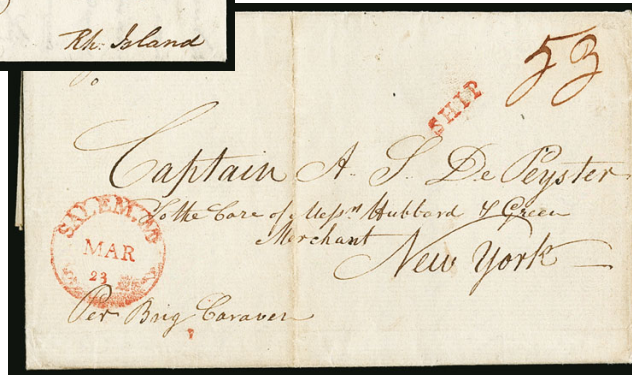 Rh. Island
To
53
SHIP
Captain A. S. De Peyster
To the Care of Messrs Hubbard & Green
Merchant
New York
SALEM. MS
MAR
23
Per Brig Caraven